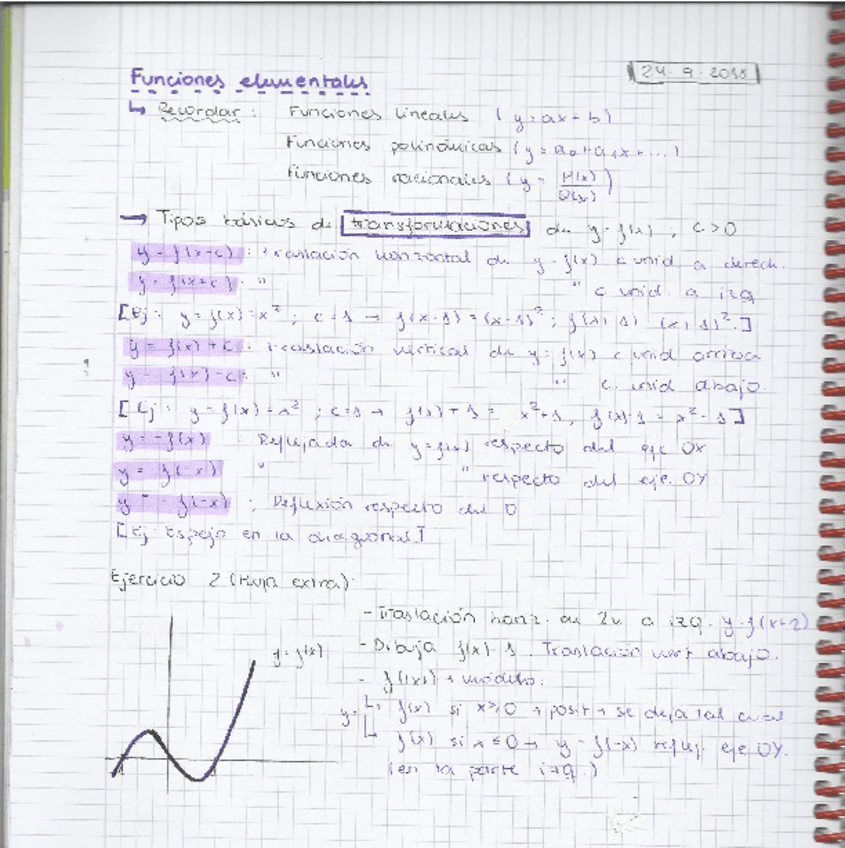 Funciones elementales
24-9-2018
↳ Recordar: Funciones lineales (y=ax+b)
Funciones polinómicas (y=a₀+a₁x+...)
Funciones racionales (y= P(x)/Q(x))
→ Tipos básicos de transformaciones de y=f(x), c>0
y=f(x-c): Traslación horizontal de y=f(x) c unid a derech.
y=f(x+c): " " c unid. a izq
[Ej: y=f(x)=x²; c=1 → f(x-1)=(x-1)²; f(x+1)=(x+1)².]
y=f(x)+c: traslación vertical de y=f(x) c unid arriba
y=f(x)-c: " " c. unid abajo.
[Ej: y=f(x)=x²; c=1 → f(x)+1= x²+1, f(x)-1=x²-1]
y=-f(x) Reflejada de y=f(x) respecto del eje OX
y=f(-x) " " respecto del eje OY
y=-f(-x): Reflexión respecto del O
[Ej Espejo en la diagonal.]
Ejercicio 2 (Hoja extra)
- Traslación horiz. de 2u a izq. y=f(x+2)
y=f(x)
- Dibuja f(x)-1. Traslación vert abajo.
- f(|x|) → módulo.
y= f(x) si x≥0 → posit → se deja tal cual
f(x) si x≤0 → y=f(-x) reflej. eje OY.
(en la parte izq.)